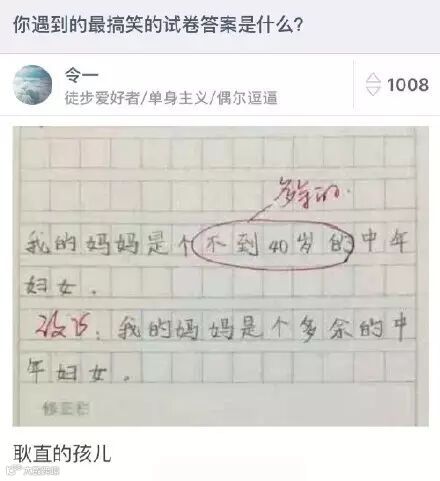 你遇到的最搞笑的试卷答案是什么?
令一
1008
徒步爱好者/单身主义/偶尔逗逼
多余的.
我的妈妈是个不到40岁的中年
妇女.
改为:我的妈妈是个多余的中
年妇女.
修正栏
耿直的孩儿